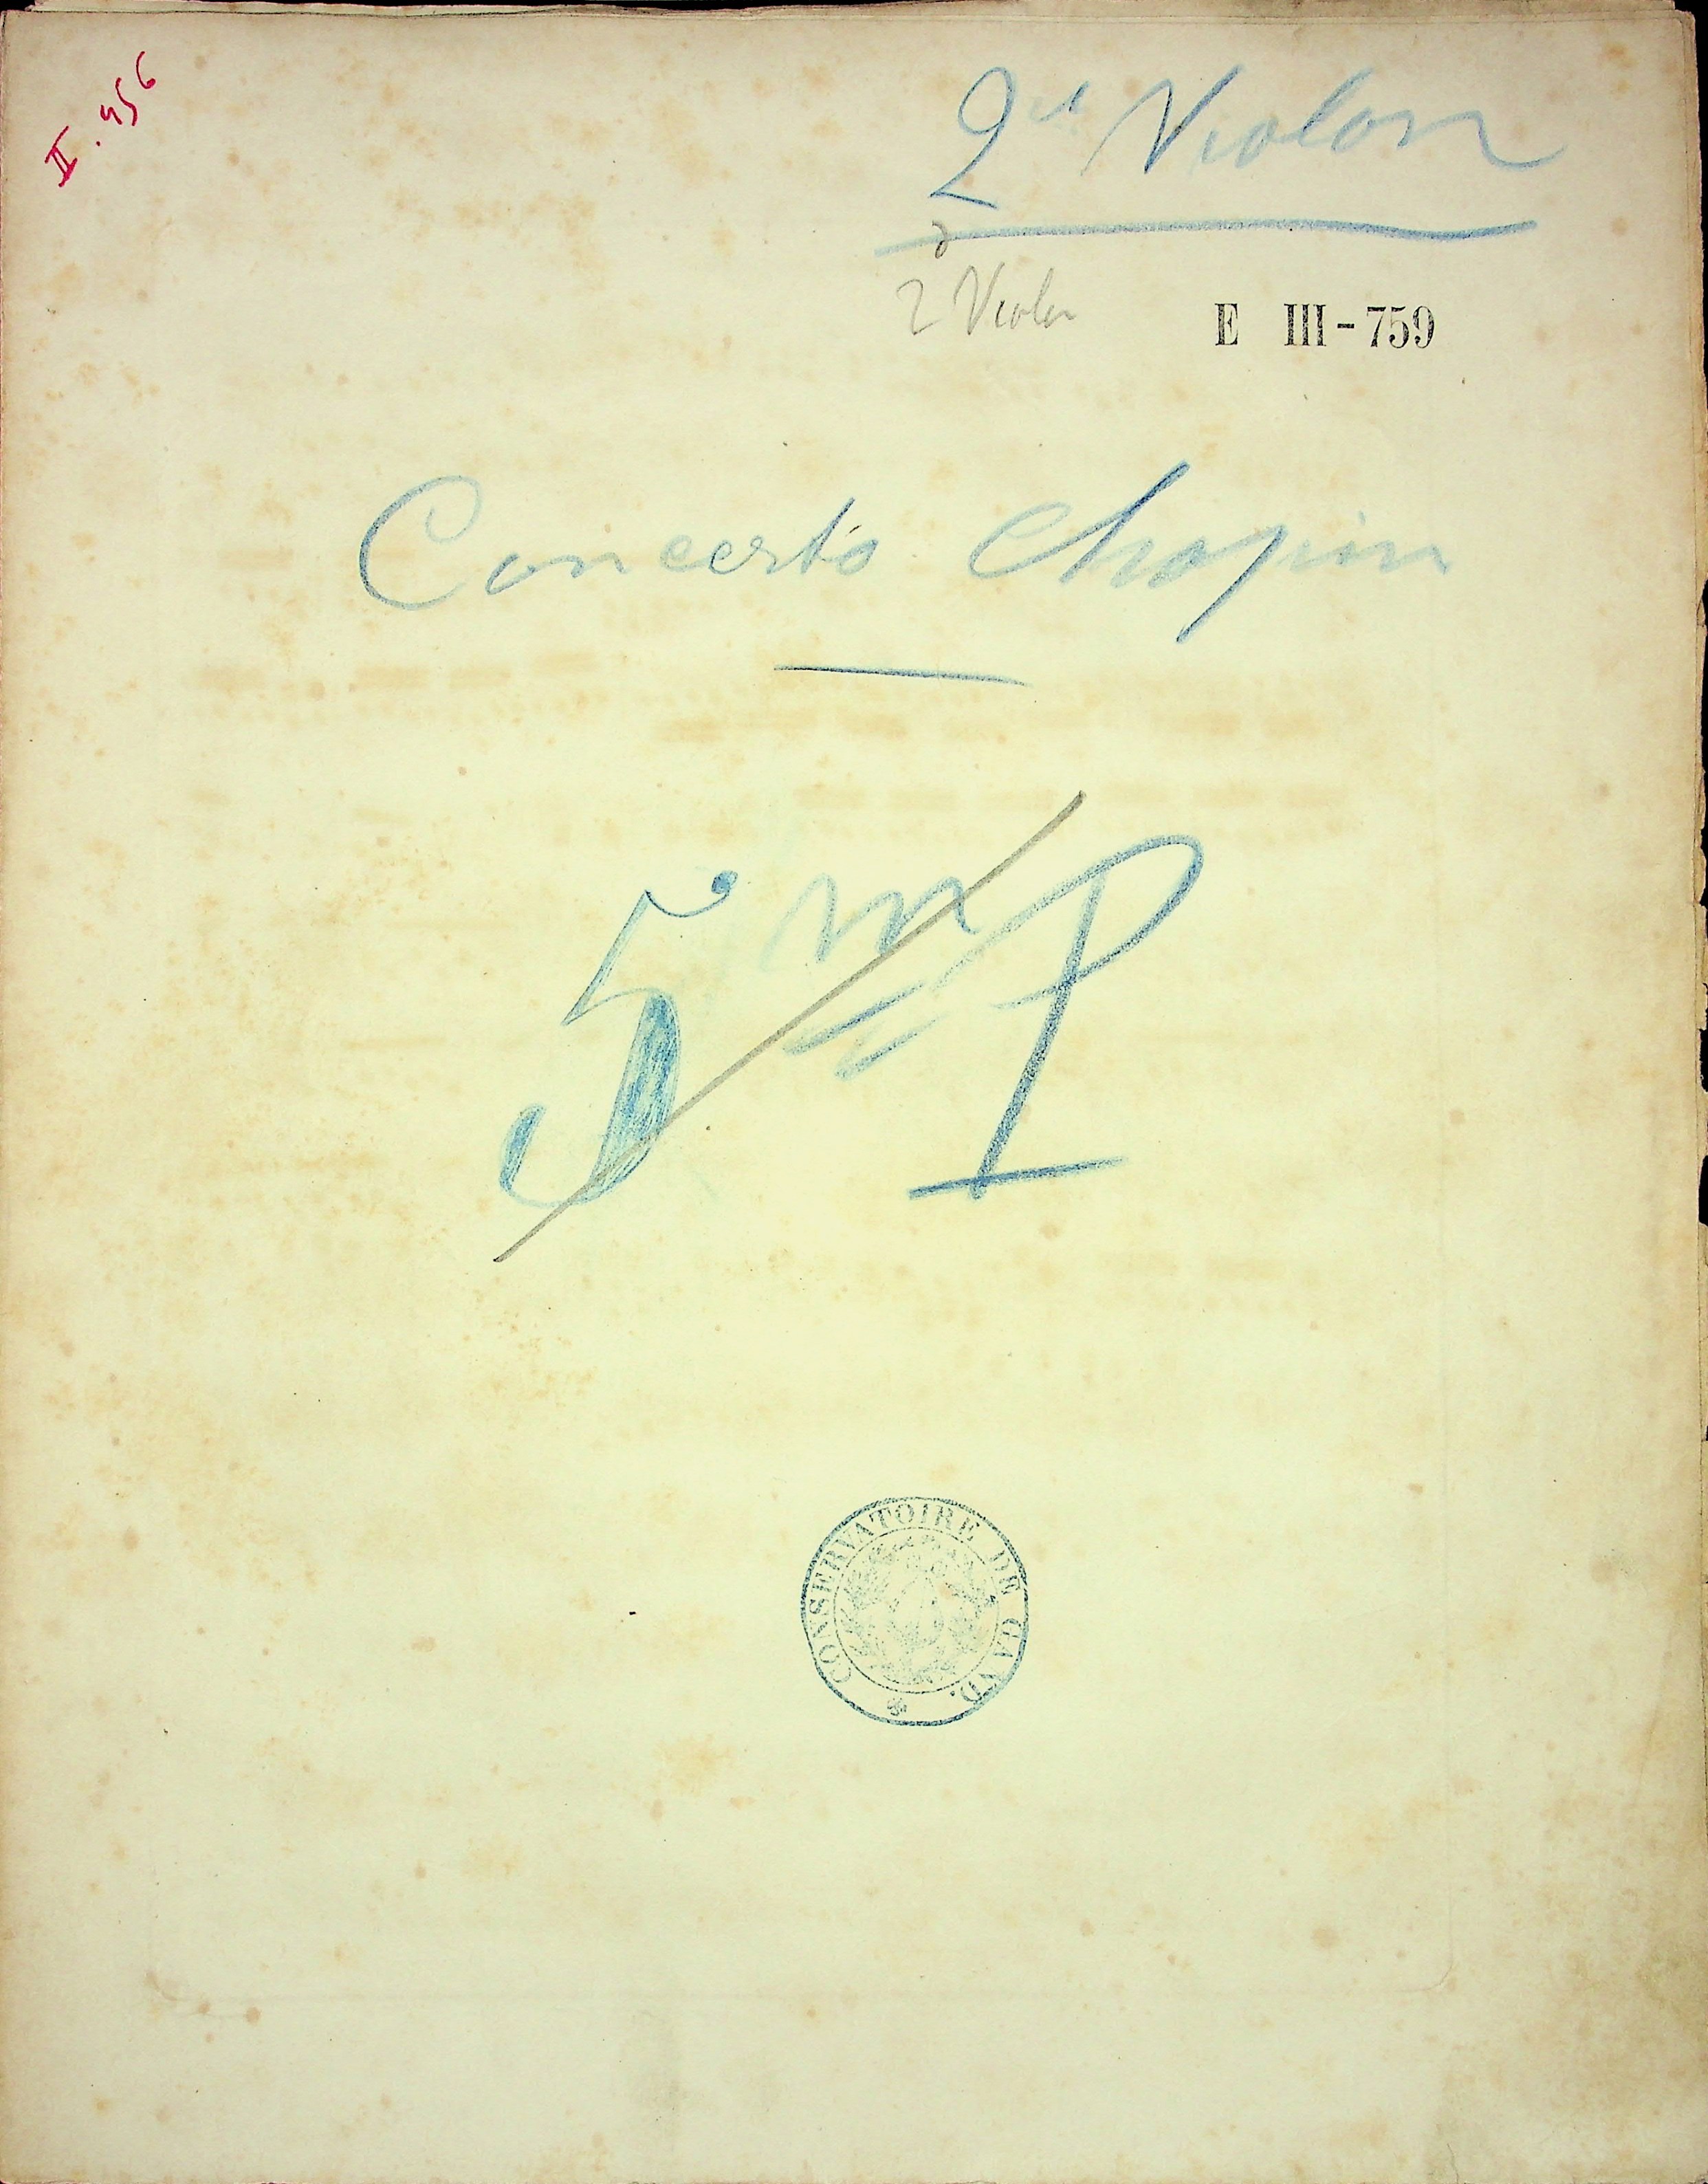 II. 956
2d Violon
2 Violon
E III-759
Concerto Chopin
5me P
CONSERVATOIRE DE GAND.